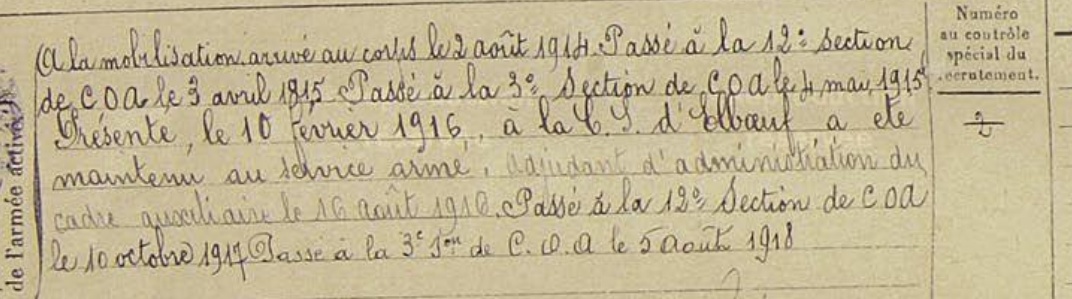 A la mobilisation arrivé au corps le 2 août 1914. Passé à la 12e Section
de COA le 3 avril 1815. Passé à la 3e Section de COA le 4 mai 1915
Présenté, le 10 février 1916, à la C.S. d'Elbœuf a été
maintenu au service armé. adjudant d'administration du
cadre auxiliaire le 16 août 1916. Passé à la 12e Section de COA
le 10 octobre 1917 Passé à la 3e Son de C.O.A le 5 Août 1918
de l'armée active
Numéro
au contrôle
spécial du
recrutement.
2